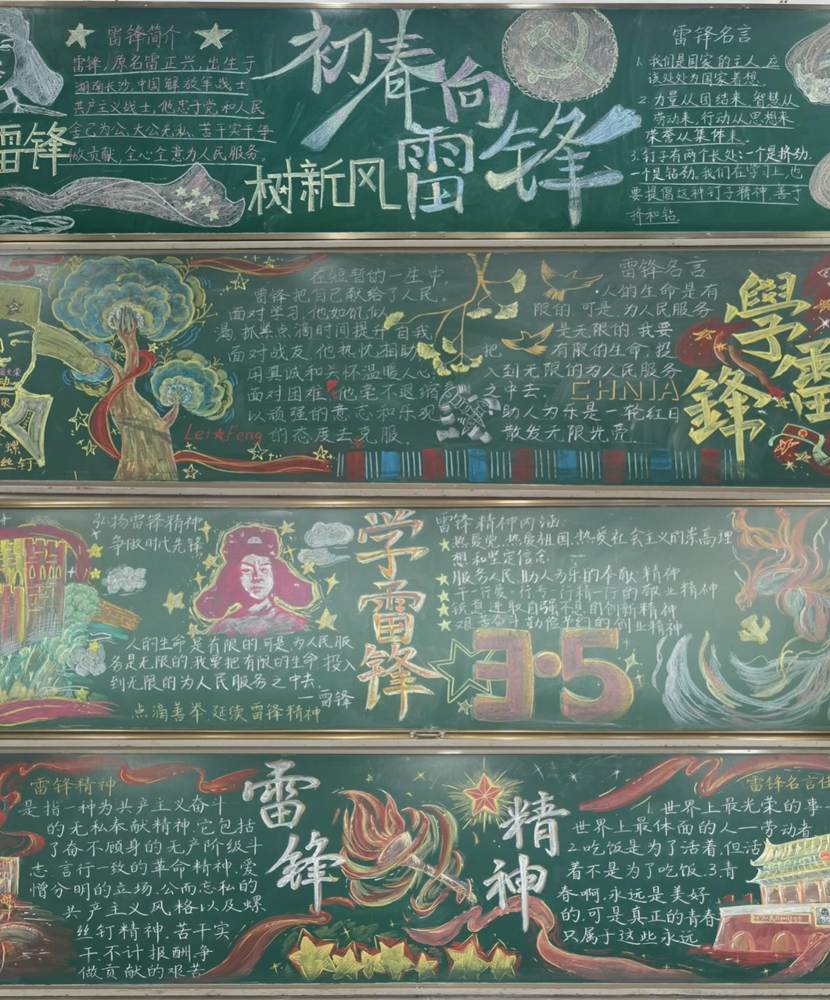 雷锋
雷锋简介
雷锋,原名雷正兴,出生于
湖南长沙,中国解放军战士
共产主义战士,他忠于党和人民
舍己为公、大公无私、苦干实干等
做贡献,全心全意为人民服务。
初春向
雷锋
树新风
雷锋名言
1.我们是国家的主人,应
该处处为国家着想
2.力量从团结来,智慧从
劳动来,行动从思想来
荣誉从集体来。
3.钉子有两个长处:一个是挤劲,
一个是钻劲,我们在学习上,也
要提倡这种钉子精神,善于
挤和钻
丝钉
在短暂的一生中
雷锋把自己献给了人民。
面对学习,他如饥似
渴,抓紧点滴时间提升自我
面对战友,他热忱相助
用真诚和关怀温暖人心
面对困难,他毫不退缩
以顽强的意志和乐观
的态度去克服
Lei Feng
雷锋名言
·人的生命是有
限的,可是,为人民服务
是无限的,我要
把有限的生命,投
入到无限的为人民服务
之中去.
CHNIA
助人为乐是一轮红日
散发无限光亮
學雷
鋒
弘扬雷锋精神
争做时代先锋
人的生命是有限的,可是,为人民服
务是无限的,我要把有限的生命,投入
到无限的为人民服务之中去
——雷锋
点滴善举 延续雷锋精神
学雷锋
雷锋精神内涵:
热爱党、热爱祖国、热爱社会主义的崇高理
想和坚定信念
服务人民、助人为乐的奉献精神
干一行爱一行、专一行精一行的敬业精神
锐意进取、自强不息的创新精神
艰苦奋斗、勤俭节约的创业精神
3·5
雷锋精神
是指一种为共产主义奋斗
的无私奉献精神.它包括
了奋不顾身的无产阶级斗
志.言行一致的革命精神.爱
憎分明的立场.公而忘私的
共产主义风格以及螺
丝钉精神.苦干实
干.不计报酬.争
做贡献的艰苦
雷锋
精神
雷锋名言
1.世界上最光荣的事
世界上最体面的人—劳动者
2.吃饭是为了活着.但活
着不是为了吃饭.3.青
春啊,永远是美好
的,可是真正的青春
只属于这些永远